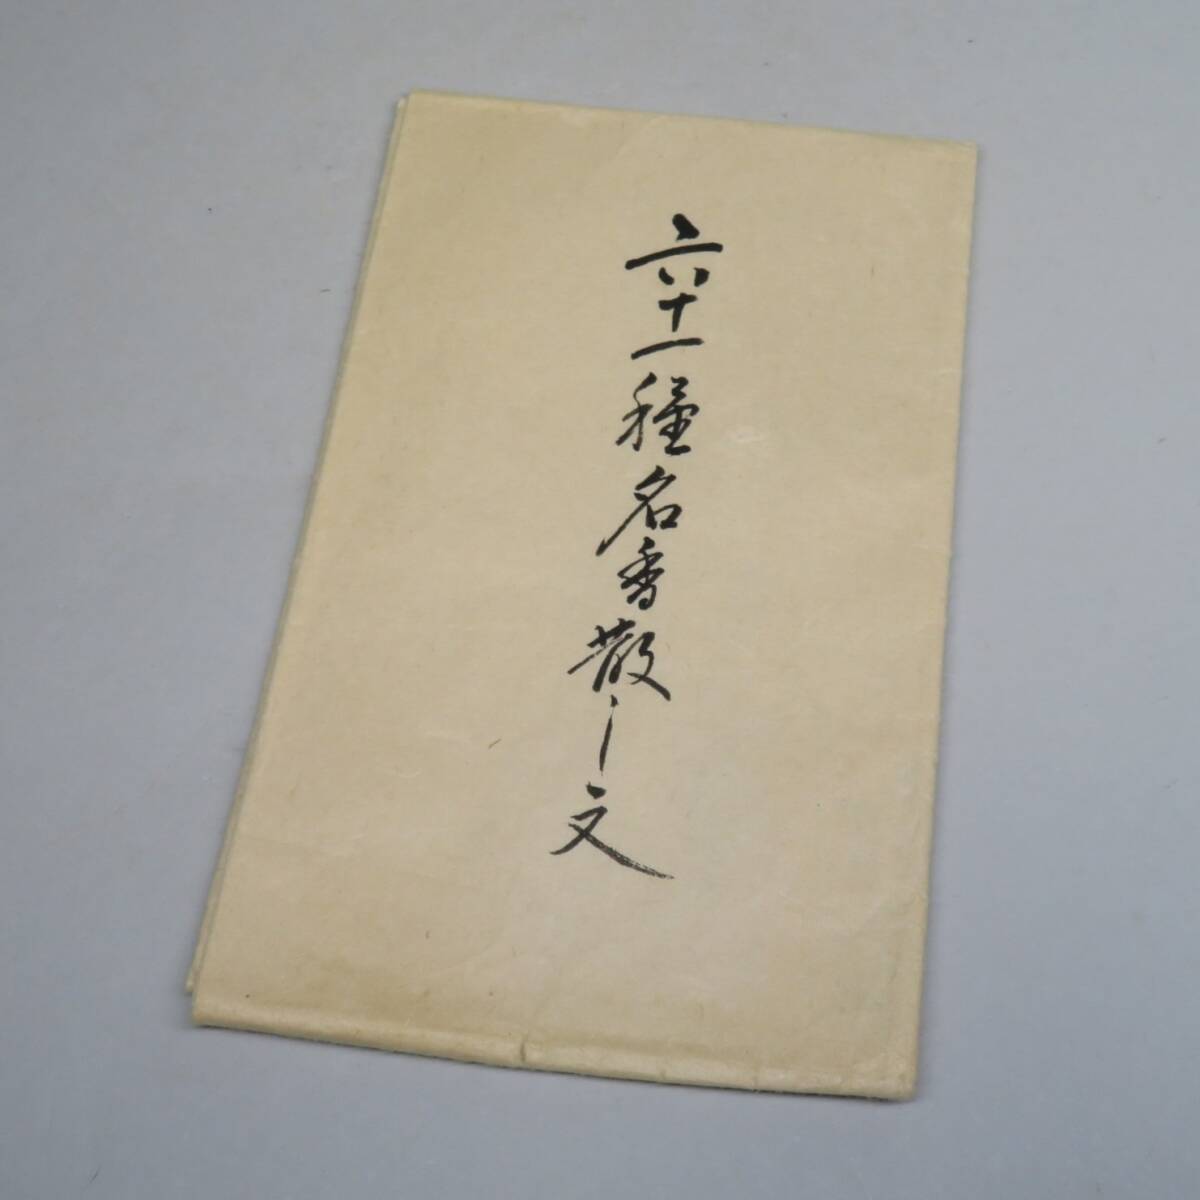 六十一種名香散し文